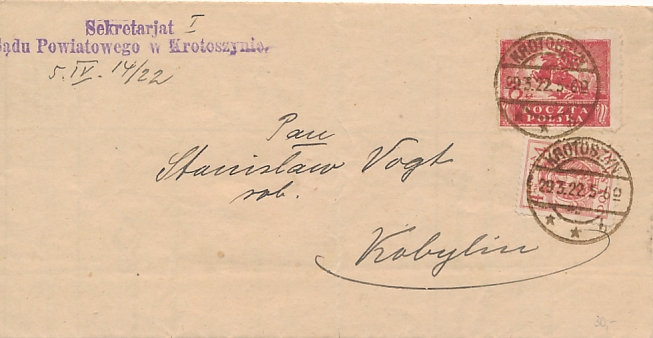 Sekretarjat I
Sądu Powiatowego w Krotoszynie.
5. IV. 14/22
KROTOSZYN
29.3.22.5-6N
POCZTA
POLSKA
Pan
Stanisław Vogt
rob.
Kobylin
KROTOSZYN
29.3.22.5-6N
30,-